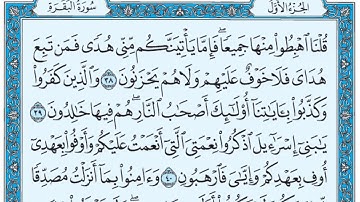 سُورَةُ البَقَرَةِ
الجُزْءُ الأَوَّلُ
قُلْنَا ٱهْبِطُوا۟ مِنْهَا جَمِيعًا ۖ فَإِمَّا يَأْتِيَنَّكُم مِّنِّى هُدًى فَمَن تَبِعَ
هُدَاىَ فَلَا خَوْفٌ عَلَيْهِمْ وَلَا هُمْ يَحْزَنُونَ ٣٨ وَٱلَّذِينَ كَفَرُوا۟
وَكَذَّبُوا۟ بِـَٔايَـٰتِنَآ أُو۟لَـٰٓئِكَ أَصْحَـٰبُ ٱلنَّارِ ۖ هُمْ فِيهَا خَـٰلِدُونَ ٣٩
يَـٰبَنِىٓ إِسْرَٰٓءِيلَ ٱذْكُرُوا۟ نِعْمَتِىَ ٱلَّتِىٓ أَنْعَمْتُ عَلَيْكُمْ وَأَوْفُوا۟ بِعَهْدِىٓ
أُوفِ بِعَهْدِكُمْ وَإِيَّـٰىَ فَٱرْهَبُونِ ٤٠ وَءَامِنُوا۟ بِمَآ أَنزَلْتُ مُصَدِّقًا